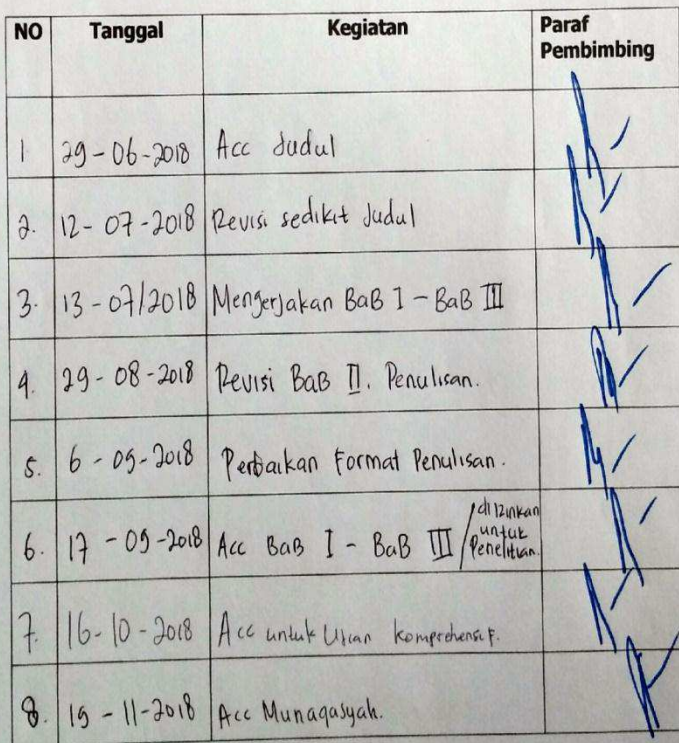 NO Tanggal Kegiatan Paraf Pembimbing
1 29-06-2018 Acc Judul
2. 12-07-2018 Revisi sedikit Judul
3. 13-07/2018 Mengerjakan BaB I - BaB III
4. 29-08-2018 Revisi BaB II. Penulisan.
5. 6-09-2018 Perbaikan Format Penulisan.
6. 17-09-2018 Acc BaB I - BaB III / diizinkan untuk Penelitian.
7. 16-10-2018 Acc untuk Ujian Komprehensif.
8. 19-11-2018 Acc Munaqasyah.